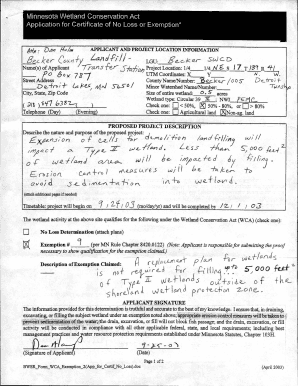 Minnesota Wetland Conservation Act
Application for Certificate of No Loss or Exemption*
Attn: Don Helm
APPLICANT AND PROJECT LOCATION INFORMATION
Becker County Landfill - Transfer Station
LGU Becker SWCD
Name(s) of Applicant
Project Location: 1/4 1/4 NE 17 139 41
PO Box 787
UTM Coordinates: X Y
Street Address
County Name/Number: Becker/005 Detroit
Detroit Lakes, MN 56501
Minor Watershed Name/Number:
City, State, Zip Code
Size of entire wetland: 0.5 acres
Wetland type: Circular 39 II NWI PEMC
218 847 6382
Check one: < 50%, 50%-80%, or > 80%
Telephone (Day) (Evening)
Check one: Agricultural land Non-ag. land
PROPOSED PROJECT DESCRIPTION
Describe the nature and purpose of the proposed project:
Expansion of cells for demolition landfilling will
impact a Type II wetland. Less than 5,000 feet²
of wetland area will be impacted by filling.
Erosion control measures will be taken to
avoid sedimentation into wetland.
(attach additional pages if needed)
Timetable: project will begin on 9/24/03 (mo/day/yr) and will be completed by 12/1/03
The wetland activity at the above site qualifies for the following under the Wetland Conservation Act (WCA) (check one):
No Loss Determination (attach plans)
Exemption # 9 (per MN Rule Chapter 8420.0122) (Note: Applicant is responsible for submitting the proof
necessary to show qualification for the exemption claimed.)
Description of Exemption Claimed: A replacement plan for wetlands
is not required for filling up to 5,000 feet²
of Type II wetlands outside of the
shoreland wetland protection zone.
APPLICANT SIGNATURE
The information provided for this determination is truthful and accurate to the best of my knowledge. I ensure that, in draining,
excavating, or filling the subject wetland under an exemption noted above, appropriate erosion control measures will be taken to
prevent sedimentation of the water; the drain, excavation, or fill will not block fish passage; and the drain, excavation, or fill
activity will be conducted in compliance with all other applicable federal, state, and local requirements, including best
management practices and water resource protection requirements established under Minnesota Statutes, Chapter 103H.
9-25-03
(Signature of Applicant) (Date)
Page 1 of 2
BWSR_Form_WCA_Exemption_2(App_for_Certif_No_Loss).doc
(April 2003)